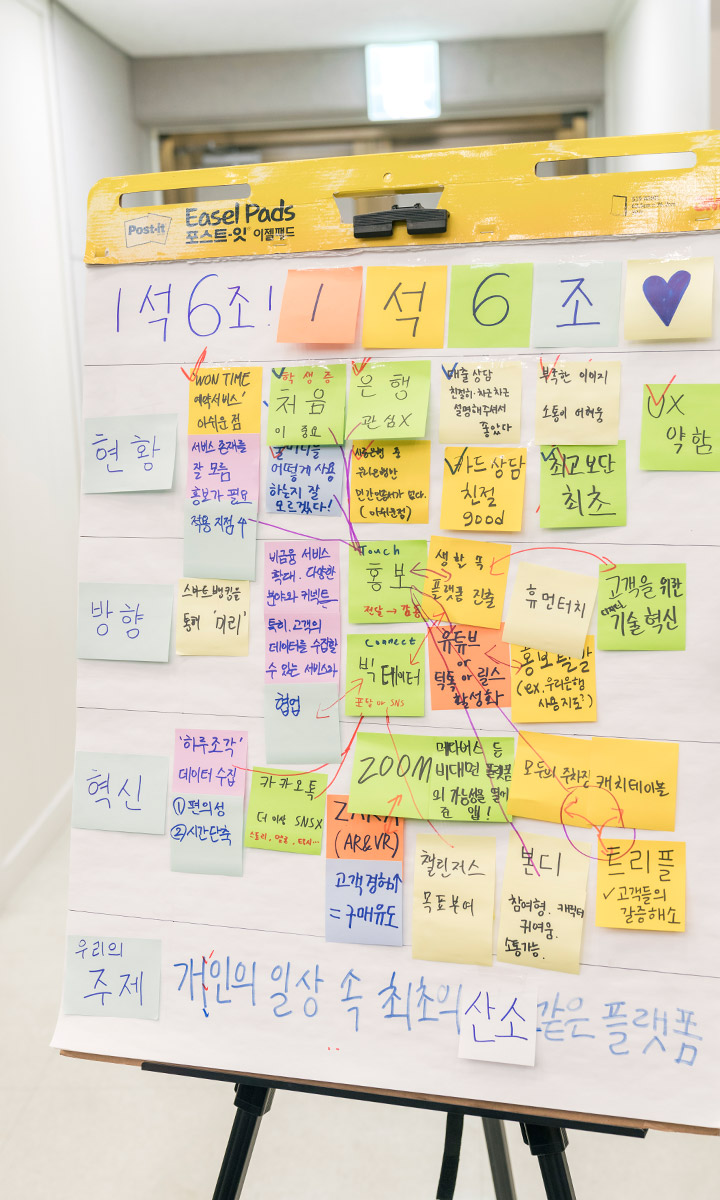 Post-it
Easel Pads
포스트-잇 이젤패드
1석6조!
1 석 6 조
현황
WON TIME
예약서비스'
아쉬운 점
서비스 존재를
잘 모름
홍보가 필요
적용 지점 수
학생증
처음
이 중요
어떻게 사용
하는지 잘
모르겠다!
은행
관심X
(아쉬운점)
대출 상담
친절히. 차근차근
설명해주셔서
좋았다
카드 상담
친절
good
부족한 이미지
소통이 어려움
최고보단
최초
UX
약함
방향
스마트뱅킹을
통해 '미리'
비금융 서비스
확대. 다양한
분야와 커넥트
특히, 고객의
데이터를 수집할
수 있는 서비스와
협업
Touch
홍보
전달 → 감동
Connect
빅데이터
포탈 or SNS
생활 속
플랫폼 진출
유튜브
or
틱톡 or 릴스
활성화
휴먼터치
(ex. 우리은행
사용지도?)
고객을 위한
기술혁신
혁신
'하루조각'
데이터 수집
① 편의성
② 시간단축
카카오톡
더 이상 SNS X
ZARA
(AR&VR)
고객경험↑
= 구매유도
ZOOM
메타버스 등
비대면 플랫폼
의 가능성을 열어
준 앱!
모두의 주차장
캐치테이블
챌린저스
목표부여
본디
참여형. 캐릭터
귀여움.
소통가능.
트리플
✓고객들의
갈증해소
우리의
주제
개인의 일상 속 최초의 산소 같은 플랫폼